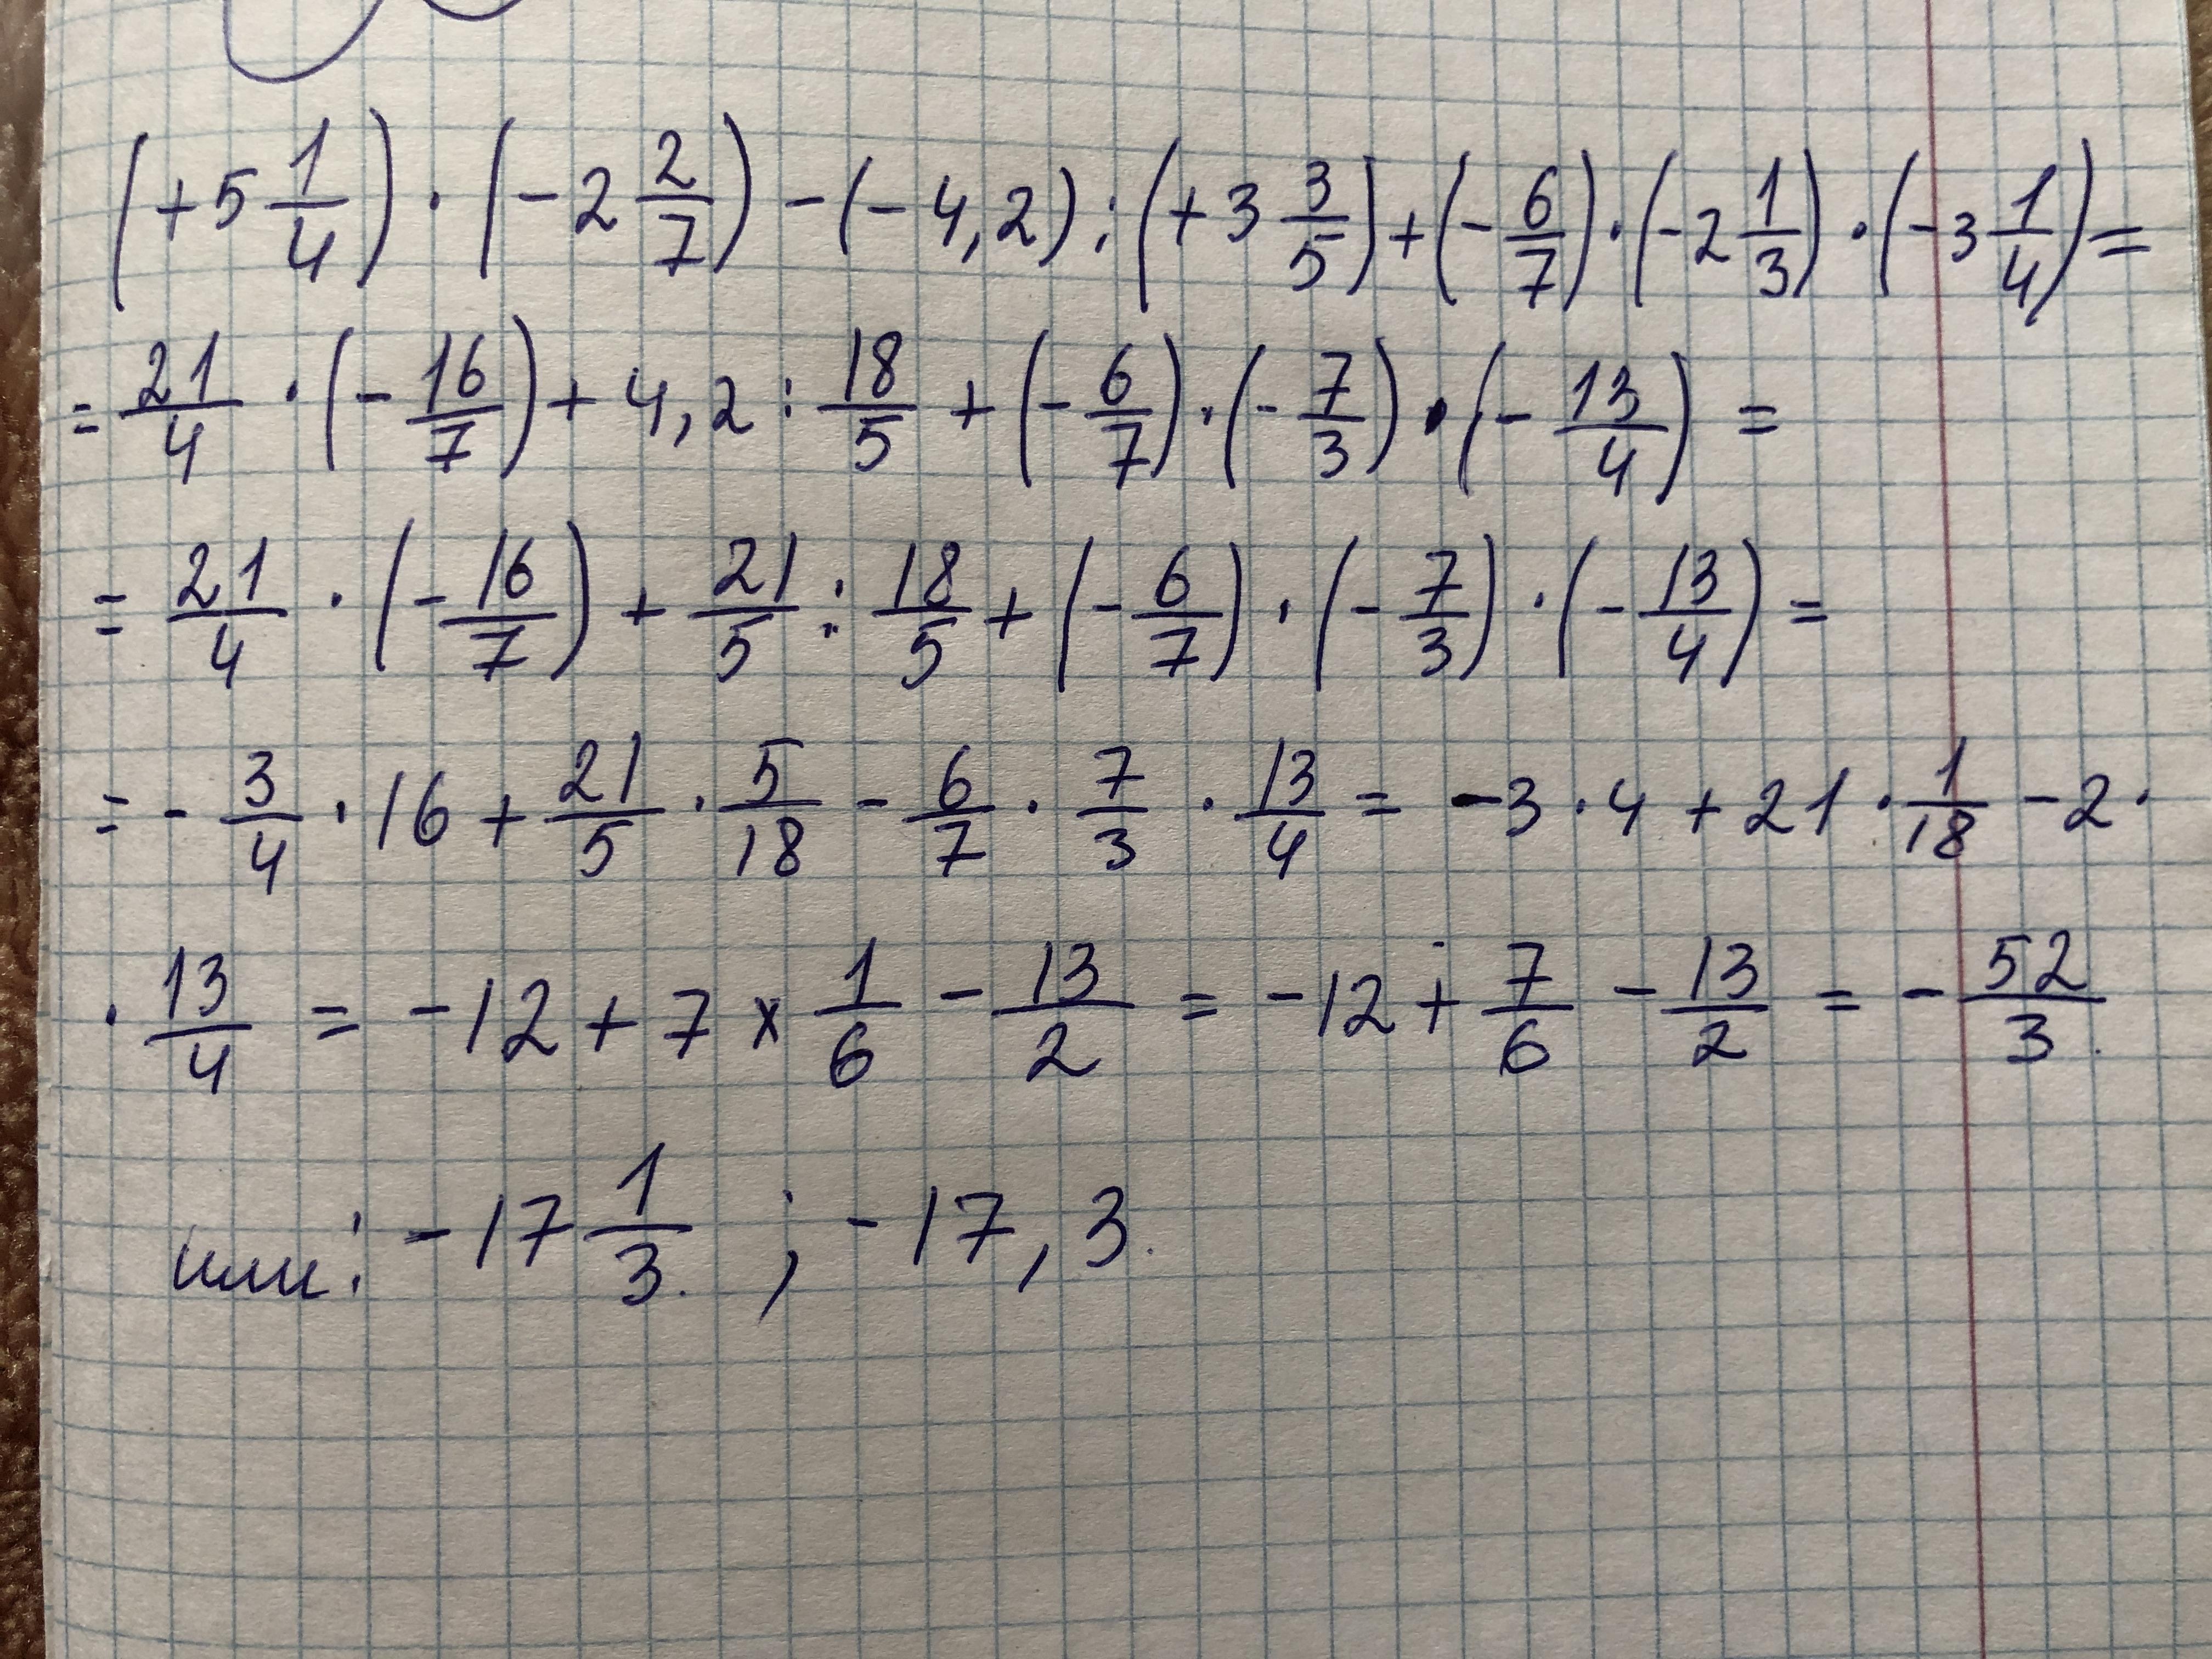 (+5 1/4) · (-2 2/7) - (-4,2) : (+3 3/5) + (-6/7) · (-2 1/3) · (-3 1/4) =
= 21/4 · (-16/7) + 4,2 : 18/5 + (-6/7) · (-7/3) · (-13/4) =
= 21/4 · (-16/7) + 21/5 : 18/5 + (-6/7) · (-7/3) · (-13/4) =
= - 3/4 · 16 + 21/5 · 5/18 - 6/7 · 7/3 · 13/4 = -3 · 4 + 21 · 1/18 - 2 ·
· 13/4 = -12 + 7 × 1/6 - 13/2 = -12 + 7/6 - 13/2 = - 52/3.
или: -17 1/3. ; -17,3.